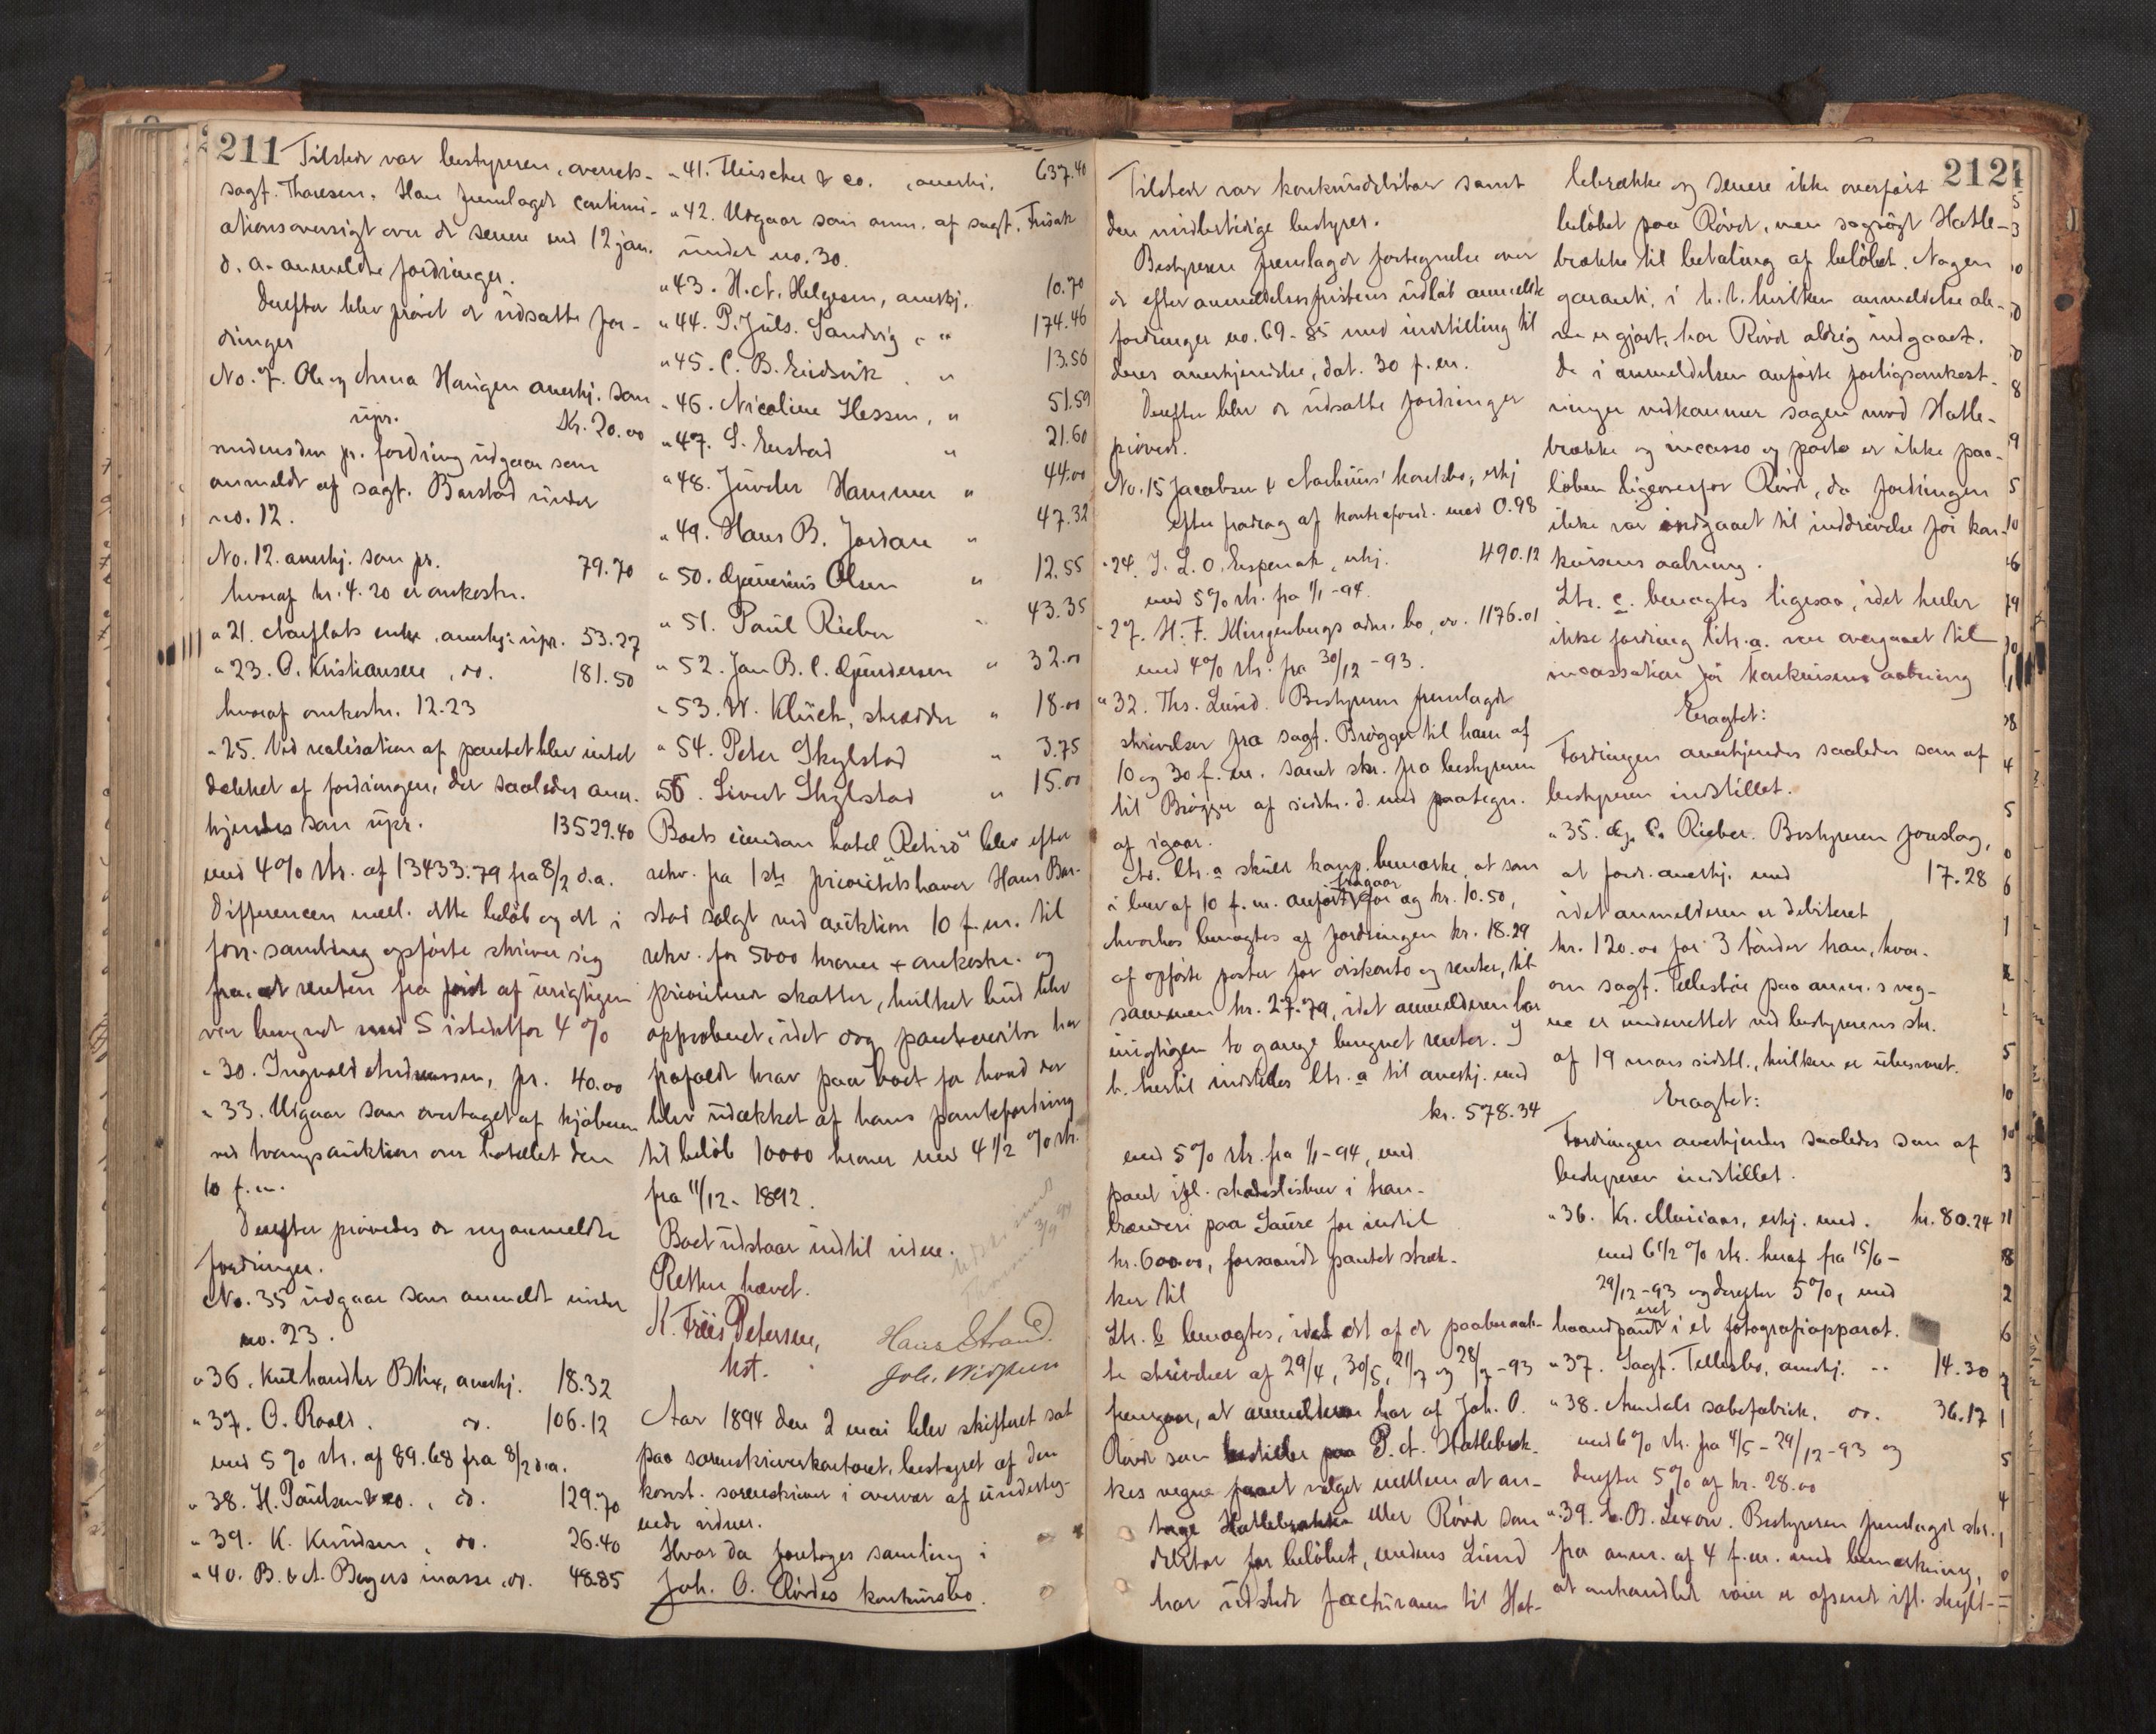 211
Tilstede var bestyreren, overrets-
sagf. Thoresen. Han fremlagde continu-
ationsoversigt over de senere end 12 jan.
d. a. anmeldte fordringer.
Derefter blev prövet de udsatte for-
dringer
No. 7. Ole og Anna Haugen anerkj. som
upr. Kr. 20.00
medens den pr. fordring udgaar som
anmeldt af sagf. Barstad under
no. 12.
No. 12. anerkj. som pr. 79.70
hvoraf kr. 4.20 er omkostn.
" 21. Aarflots enke, anerkj. upr. 53.27
" 23. O. Kristiansen, do. 181.50
hvoraf omkostn. 12.23
" 25. Ved realisation af pantet blev intet
dækket af fordringen, der saaledes aner-
kjendes som upr. 13529.40
med 4% rtr. af 13433.79 fra 8/2 d.a.
Differencen mell. dette beløb og det i
forr. samling opførte skriver sig
fra at renten fra först af urigtigen
var beregnet med 5 istedetfor 4%
" 30. Ingvald Andreassen, pr. 40.00
" 33. Udgaar som overtaget af kjøberen
ved tvangsauktion over hotellet den
10 f.m.
Derefter prövedes de nyanmeldte
fordringer.
No. 35 udgaar som anmeldt under
no. 23.
" 36. Kulhandler Blix, anerkj. 18.32
" 37. O. Roald. do. 106.12
med 5% rtr. af 89.68 fra 8/2 d.a.
" 38. H. Poulsen & co., do. 129.70
" 39. K. Knudsen, do. 26.40
" 40. B. & A. Bøgers masse, do. 48.85
" 41. Fleischer & co., anerkj. 637.40
" 42. Udgaar som anm. af sagf. Frisak
under no. 30.
" 43. H. A. Helgesen, anerkj. 10.70
" 44. P. Juls. Sandvig, " 174.46
" 45. C. B. Eidsvik " 13.56
" 46. Nicoline Hessen, " 51.59
" 47. S. Enstad " 21.60
" 48. Juveler Hammer " 44.00
" 49. Hans B. Jordan " 47.32
" 50. Gunerius Olsen " 12.55
" 51. Paul Rieber " 43.35
" 52. Jan B. C. Gundersen " 32.00
" 53. W. Klück, skrædder " 18.00
" 54. Peter Skylstad " 3.75
56. Sivert Skylstad " 15.00
Boets eiendom hotel "Retiro" blev efter
rekv. fra 1ste prioritetshaver Hans Bar-
stad solgt ved auktion 10 f.m. til
rekv. for 5000 kroner + omkostn. og
prioriterede skatter, hvilket bud blev
approberet, idet dog pantekreditor har
frafaldt krav paa boet for hvad der
blev udækket af hans pantefordring
til beløb 10000 kroner med 4 1/2 % rtr.
fra 11/12 - 1892.
Boet udstaar indtil videre.
Retten hævet.
K. Friis Petersen,
kst.
Hans Strand.
Joh.
Aar 1894 den 2 mai blev skifteret sat
paa sorenskriverkontoret, bestyret af den
konst. sorenskriver i overvær af underteg-
nede vidner.
Hvor da foretoges samling i
Joh. O. Rövdes konkursbo.
Tilstede var konkursdebitor samt
den midlertidige bestyrer.
Bestyreren fremlagde fortegnelse over
de efter anmeldelsesfristens udløb anmeldte
fordringer no. 69-85 med indstilling til
deres anerkjendelse, dat. 30 f.m.
Derefter blev de udsatte fordringer
prövede.
No. 15 Jacobsen & konkbo, erkj
efter fradrag af kontrafordr. med 0.98
" 24. J. L. O. Espenak, erkj. 490.12
med 5% rtr. fra 1/1-94.
" 27. H. F. Klingenbergs adm. bo, do. 1176.01
med 4% rtr. fra 30/12-93.
" 32. Ths. Lund. Bestyreren fremlagde
skrivelser fra sagf. Brögger til ham af
10 og 30 f.m. samt skr. fra bestyreren
til Brögger af sidstn. d. med paategn.
af igaar.
Ad. ltr. a skulde komp. bemærke, at som
i brev af 10 f.m. anført fragaar kr. 10.50,
hvorhos benægtes af fordringen kr. 18.29
af opførte poster for diskonto og renter, til-
sammen kr. 27.79, idet anmelderen har
urigtigen to gange beregnet renter. I
h. hertil indstilles ltr. a til anerkj. med
kr. 578.34
med 5% rtr. fra 1/1-94, med
pant ifl. skadeslösbrev i tran-
brænderi paa Saure for indtil
kr. 600.00, forsaavidt pantet stræk-
ker til
Ltr. b benægtes, idet det af de paaberaab-
te skrivelser af 29/4, 30/5, 21/7 og 28/7-93
fremgaar, at anmelderen har af Joh. O.
Rövde som paa P. A. Hatlebræk-
kes vegne faaet valget mellem at an-
tage Hatlebrække eller Rövde som
debitor for beløbet, medens Lund
har udstedt facturaen til Hat-
212
lebrække og senere ikke overført
beløbet paa Rövde, men sagsögt Hatle-
brække til betaling af beløbet. Nogen
garanti, i h. t. hvilken anmeldelse ale-
ne er gjort, har Rövde aldrig indgaaet.
De i anmeldelsen anførte forligsomkost-
ninger vedkommer sagen mod Hatle-
brække og incasso og porto er ikke paa-
løben ligeoverfor Rövde, da fordringen
ikke var indgaaet til inddrivelse för kon-
kursens aabning.
Ltr. c. benægtes ligesaa, idet heller
ikke fordring litr. a. var overgaaet til
incassation för konkursens aabning
Eragtet:
Fordringen anerkjendes saaledes som af
bestyreren indstillet.
" 35. G. C. Rieber. Bestyreren foreslog,
at fordr. anerkj. med 17.28
idet anmelderen er debiteret
kr. 120.00 for 3 tönder tran, hvor-
om sagf. Tellesbö paa anm.s veg-
ne er underrettet ved bestyrerens skr.
af 19 mars sidstl., hvilken er ubesvaret.
Eragtet:
Fordringen anerkjendes saaledes som af
bestyreren indstillet.
" 36. Kr. Musiaas, erkj. med. kr. 80.24
med 6 1/2 % rtr. heraf fra 15/6 -
29/12-93 og derefter 5%, med
haandpanteret i et fotografiapparat.
" 37. Sagf. Tellesbö, anerkj. " 14.30
" 38. Arendals sæbefabrik, do. 36.17
med 6% rtr. fra 4/5 - 29/12-93 og
derefter 5% af kr. 28.00
" 39. L. B. Lexow. Bestyreren fremlagde skr.
fra anm. af 4 f.m. med bemærkning,
at omhandlede varer er afsendt ifl. skylt-